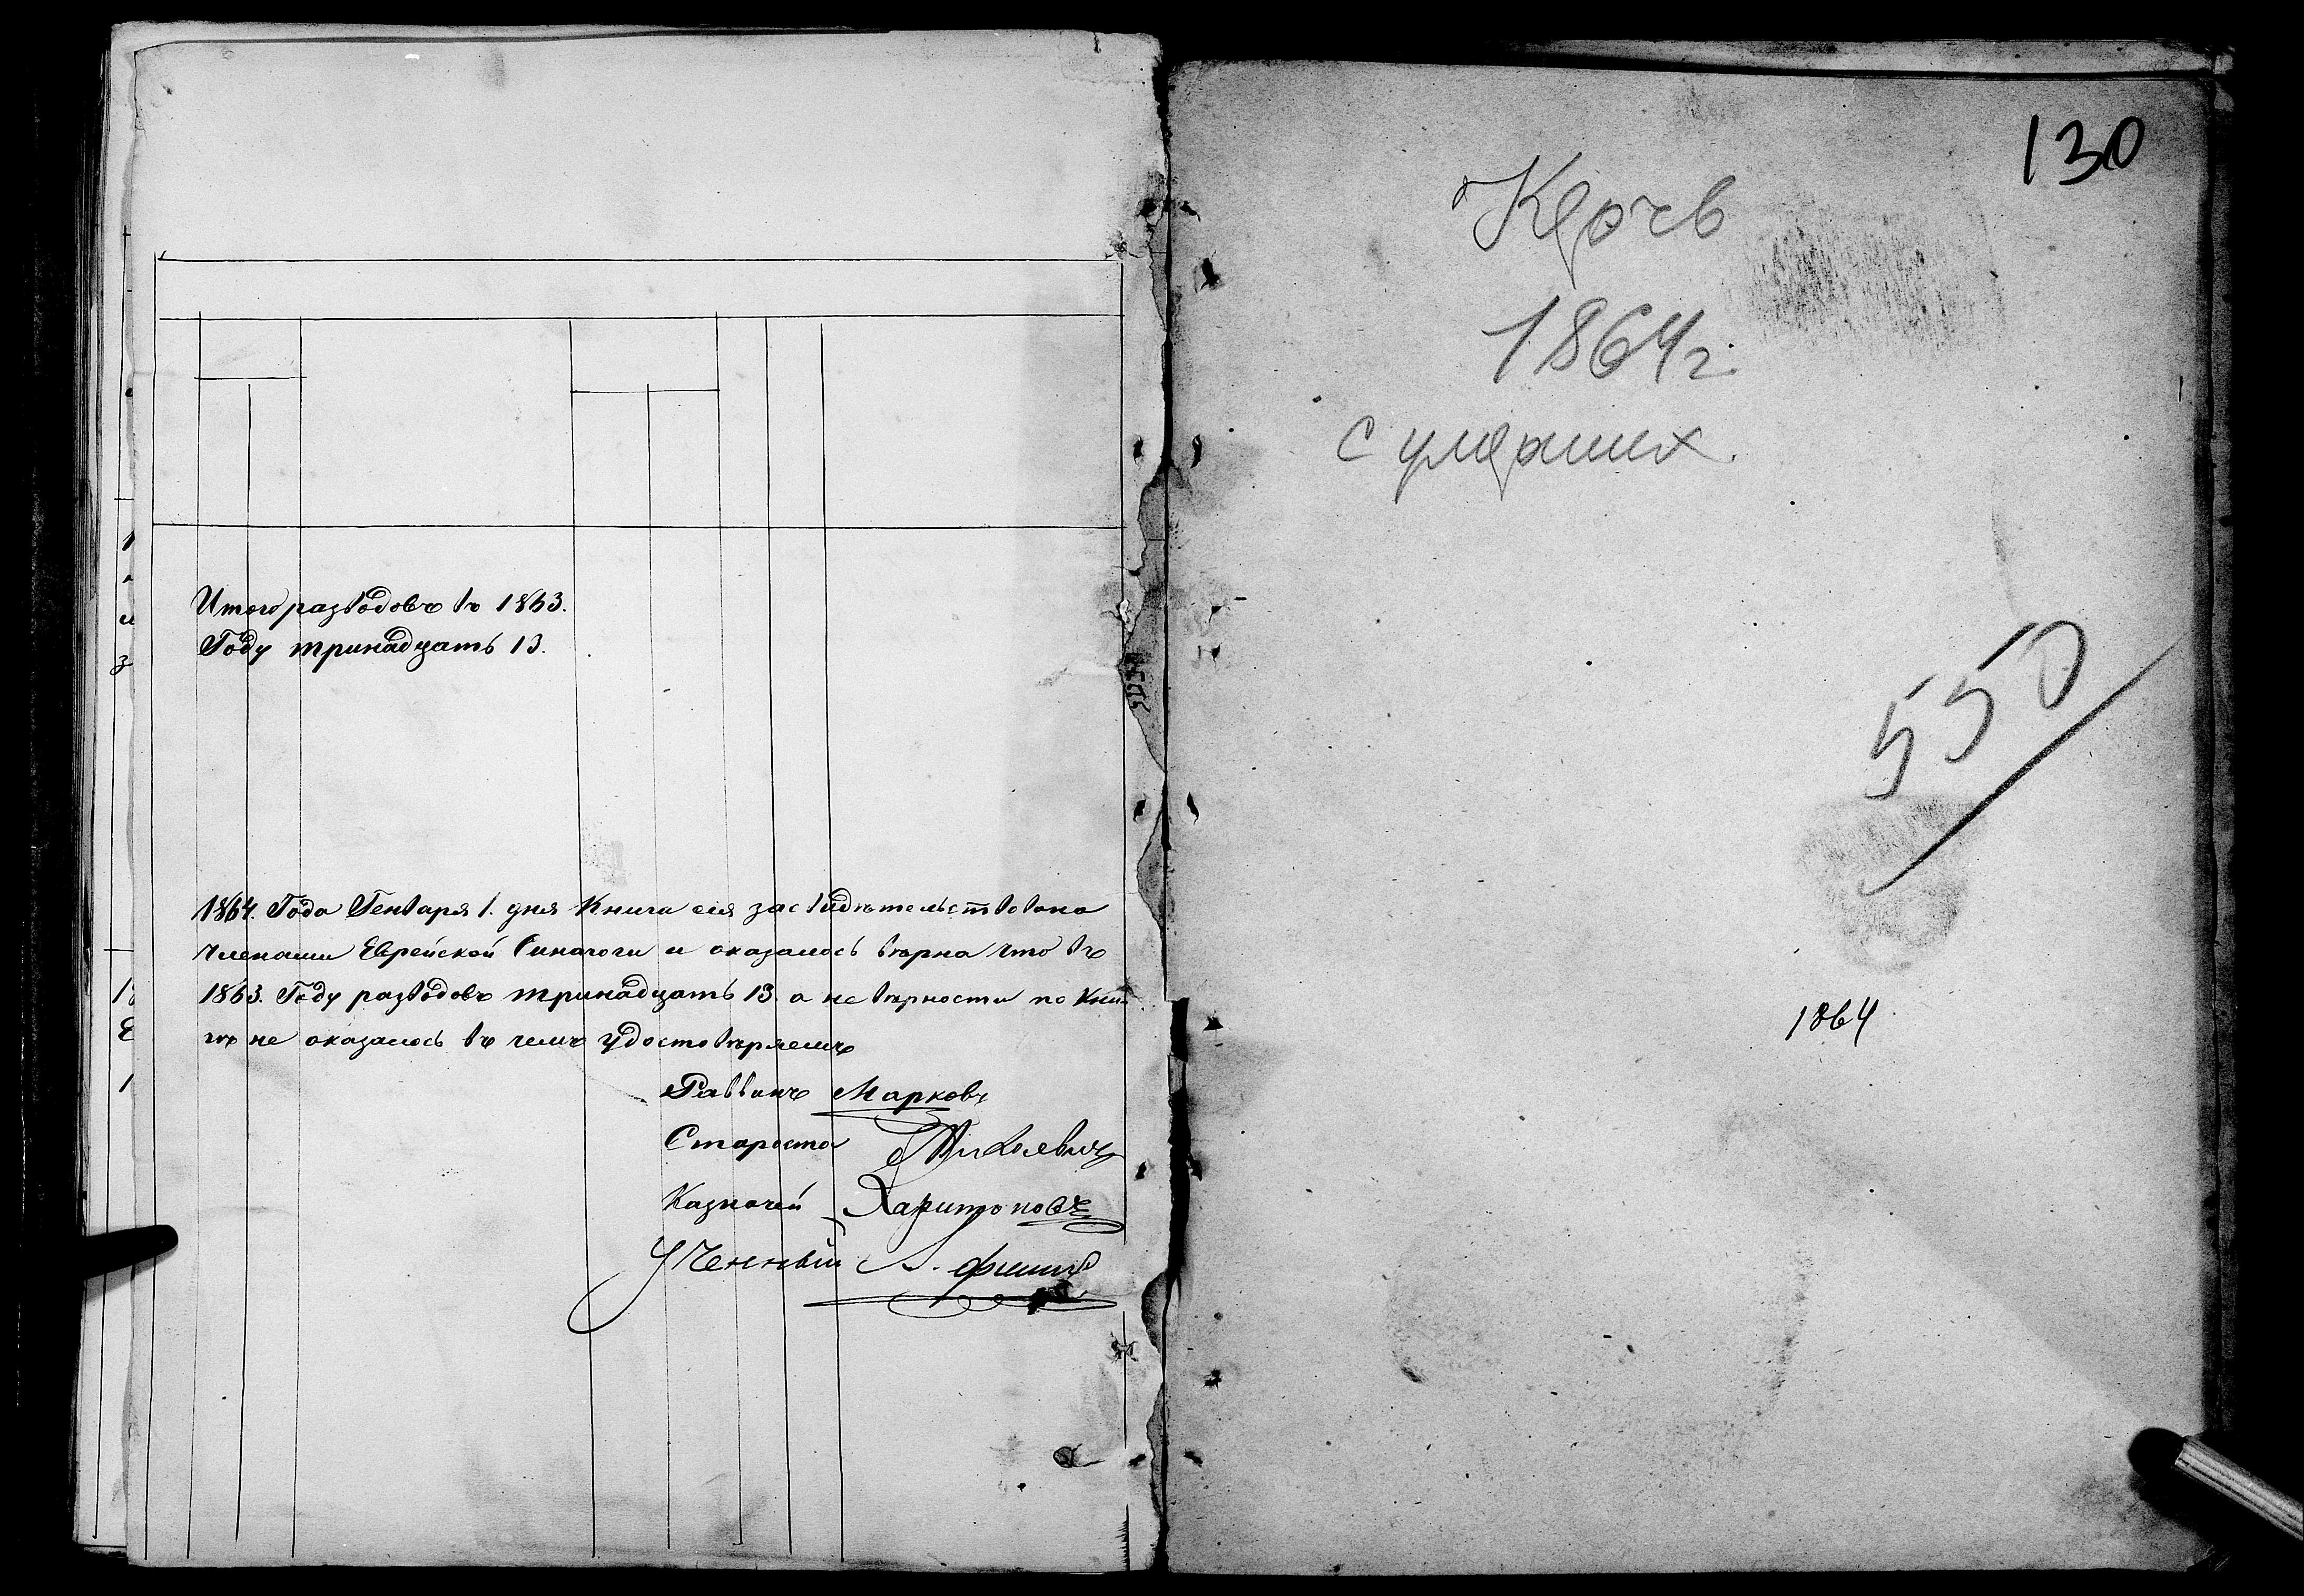 Итого разводовъ въ 1863.
Году тринадцать 13.
1864. Года Генваря 1. дня Книга сия засвидѣтельствована
членами Еврейской Синагоги и оказалось вѣрна что въ
1863. Году разводовъ тринадцать 13. а не вѣрности по кни-
гѣ не оказалось въ чемъ удостовѣряемъ
Раввинъ Марковъ
Староста
Казначей Харитоновъ
Ученный
130
Керчь
1864 г.
с умерших.
550
1864